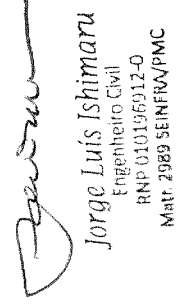 Jorge Luís Ishimaru
Engenheiro Civil
RNP 010196912-0
Matr. 2989 SEINFRA/PMC